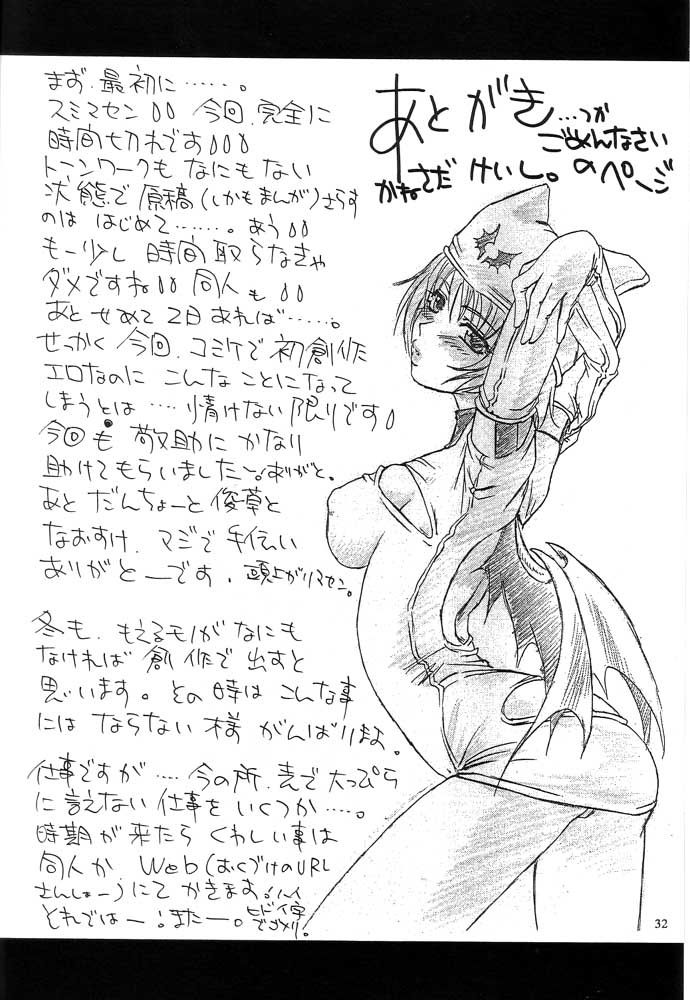 あとがき…つか
ごめんなさい
のページ
かねさだ けいし。
まず、最初に……。
スミマセン 今回、完全に
時間切れです
トーンワークもなにもない
状態で原稿(しかもまんが)さらす
のは はじめて……。あう
もー少し 時間 取らなきゃ
ダメですね 同人も
あと せめて 2日 あれば……。
せっかく 今回、コミケで 初創作
エロなのに こんな ことになって
しまうとは…. 情けない 限りです
今回も 敬助に かなり
助けて もらいました〜。ありがと。
あと だんちょーと 俊草と
なおすけ、マジで 手伝い
ありがとーです、頭上がりマセン。
冬も、もえるモノが なにも
なければ 創作で 出すと
思います。その時は こんな事
には ならない 様 がんばりまよ。
仕事ですが…. 今の所、表で 大っぴら
に言えない 仕事を いくつか….。
時期が 来たら くわしい 事は
同人か Web(おくづけのURL
さんしょー)にて かきます!ハイ
それではー!またー。ヒドイ字
でゴメリ!
32